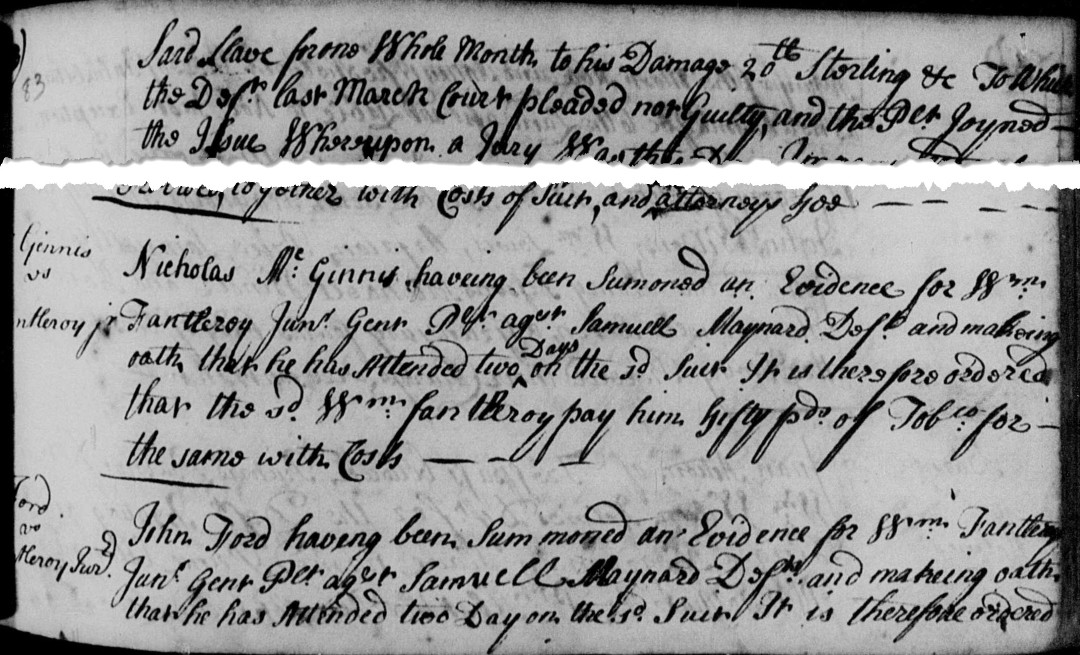 83
Said Slave for one Whole Month to his Damage 20th Sterling &c To Which
the Deft last March Court pleaded not Guilty, and the Plt Joyned
the Issue Whereupon a Jury
together with Costs of Suit, and attorneys fee
Ginnis
vs
ntleroy jr
Nicholas Mc: Ginnis haveing been Sumoned an Evidence for Wm
Fantleroy Junr Gent Plt agst Samuell Maynard Deft and makeing
oath that he has Attended two Days on the sd Suit It is therefore ordered
that the sd Wm fantleroy pay him fifty pds of Tobco for
the same with Costs
Ford
vs
tleroy Junr
John Ford haveng been Summoned an Evidence for Wm Fantleroy
Junr Gent Plt agst Samuell Maynard Deft and makeing oath
that he has Attended two Day on the sd Suit It is therefore ordered